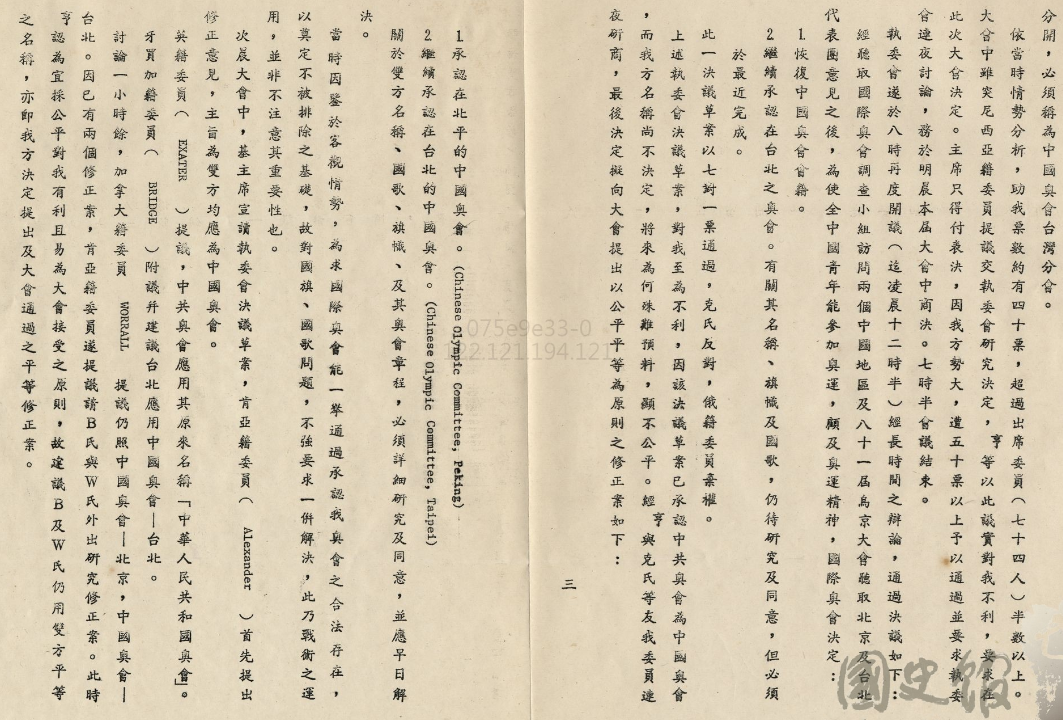 分開，必須稱為中國奧會台灣分會。
依當時情勢分析，助我票數約有四十票，超過出席委員（七十四人）半數以上。
大會中雖突尼西亞籍委員提議交執委會研究決定，亨等以此議實對我不利，要求在
此次大會決定。主席只得付表決，因我方勢大，遭五十票以上予以通過並要求執委
會連夜討論，務於明晨本屆大會中商決。七時半會議結束。
執委會遂於八時再度開議（迄凌晨十二時半）經長時間之辯論，通過決議如下：
經聽取國際奧會調查小組訪問兩個中國地區及八十一屆烏京大會聽取北京及台北
代表團意見之後，為使全中國青年能參加奧運，顧及奧運精神，國際奧會決定：
1.恢復中國奧會會籍。
2.繼續承認在台北之奧會。有關其名稱、旗幟及國歌，仍待研究及同意，但必須
於最近完成。
此一決議草案以七對一票通過，克氏反對，俄籍委員棄權。
上述執委會決議草案，對我至為不利，因該決議草案已承認中共奧會為中國奧會
，而我方名稱尚不決定，將來為何殊難預料，顯不公平。經亨與克氏等友我委員連
夜研商，最後決定擬向大會提出以公平平等為原則之修正案如下：
三
1.承認在北平的中國奧會。(Chinese Olympic Committee, Peking)
2.繼續承認在台北的中國奧會。(Chinese Olympic Committee, Taipei)
關於雙方名稱、國歌、旗幟、及其奧會章程，必須詳細研究及同意，並應早日解
決。
當時因鑒於客觀情勢，為求國際奧會能一舉通過承認我奧會之合法存在，
以奠定不被排除之基礎，故對國旗、國歌問題，不強要求一併解決，此乃戰術之運
用，並非不注意其重要性也。
次晨大會中，基主席宣讀執委會決議草案，肯亞籍委員（ Alexander ）首先提出
修正意見，主旨為雙方均應為中國奧會。
英籍委員（ EXATER ）提議，中共奧會應用其原來名稱「中華人民共和國奧會」。
牙買加籍委員（ BRIDGE ）附議并建議台北應用中國奧會—台北。
討論一小時餘，加拿大籍委員 WORRALL 提議仍照中國奧會—北京，中國奧會—
台北。因已有兩個修正案，肯亞籍委員遂提議請B氏與W氏外出研究修正案。此時
亨認為宜採公平對我有利且易為大會接受之原則，故建議B及W氏仍用雙方平等
之名稱，亦即我方決定提出及大會通過之平等修正案。
075e9e33-0
122.121.194.121
國史館